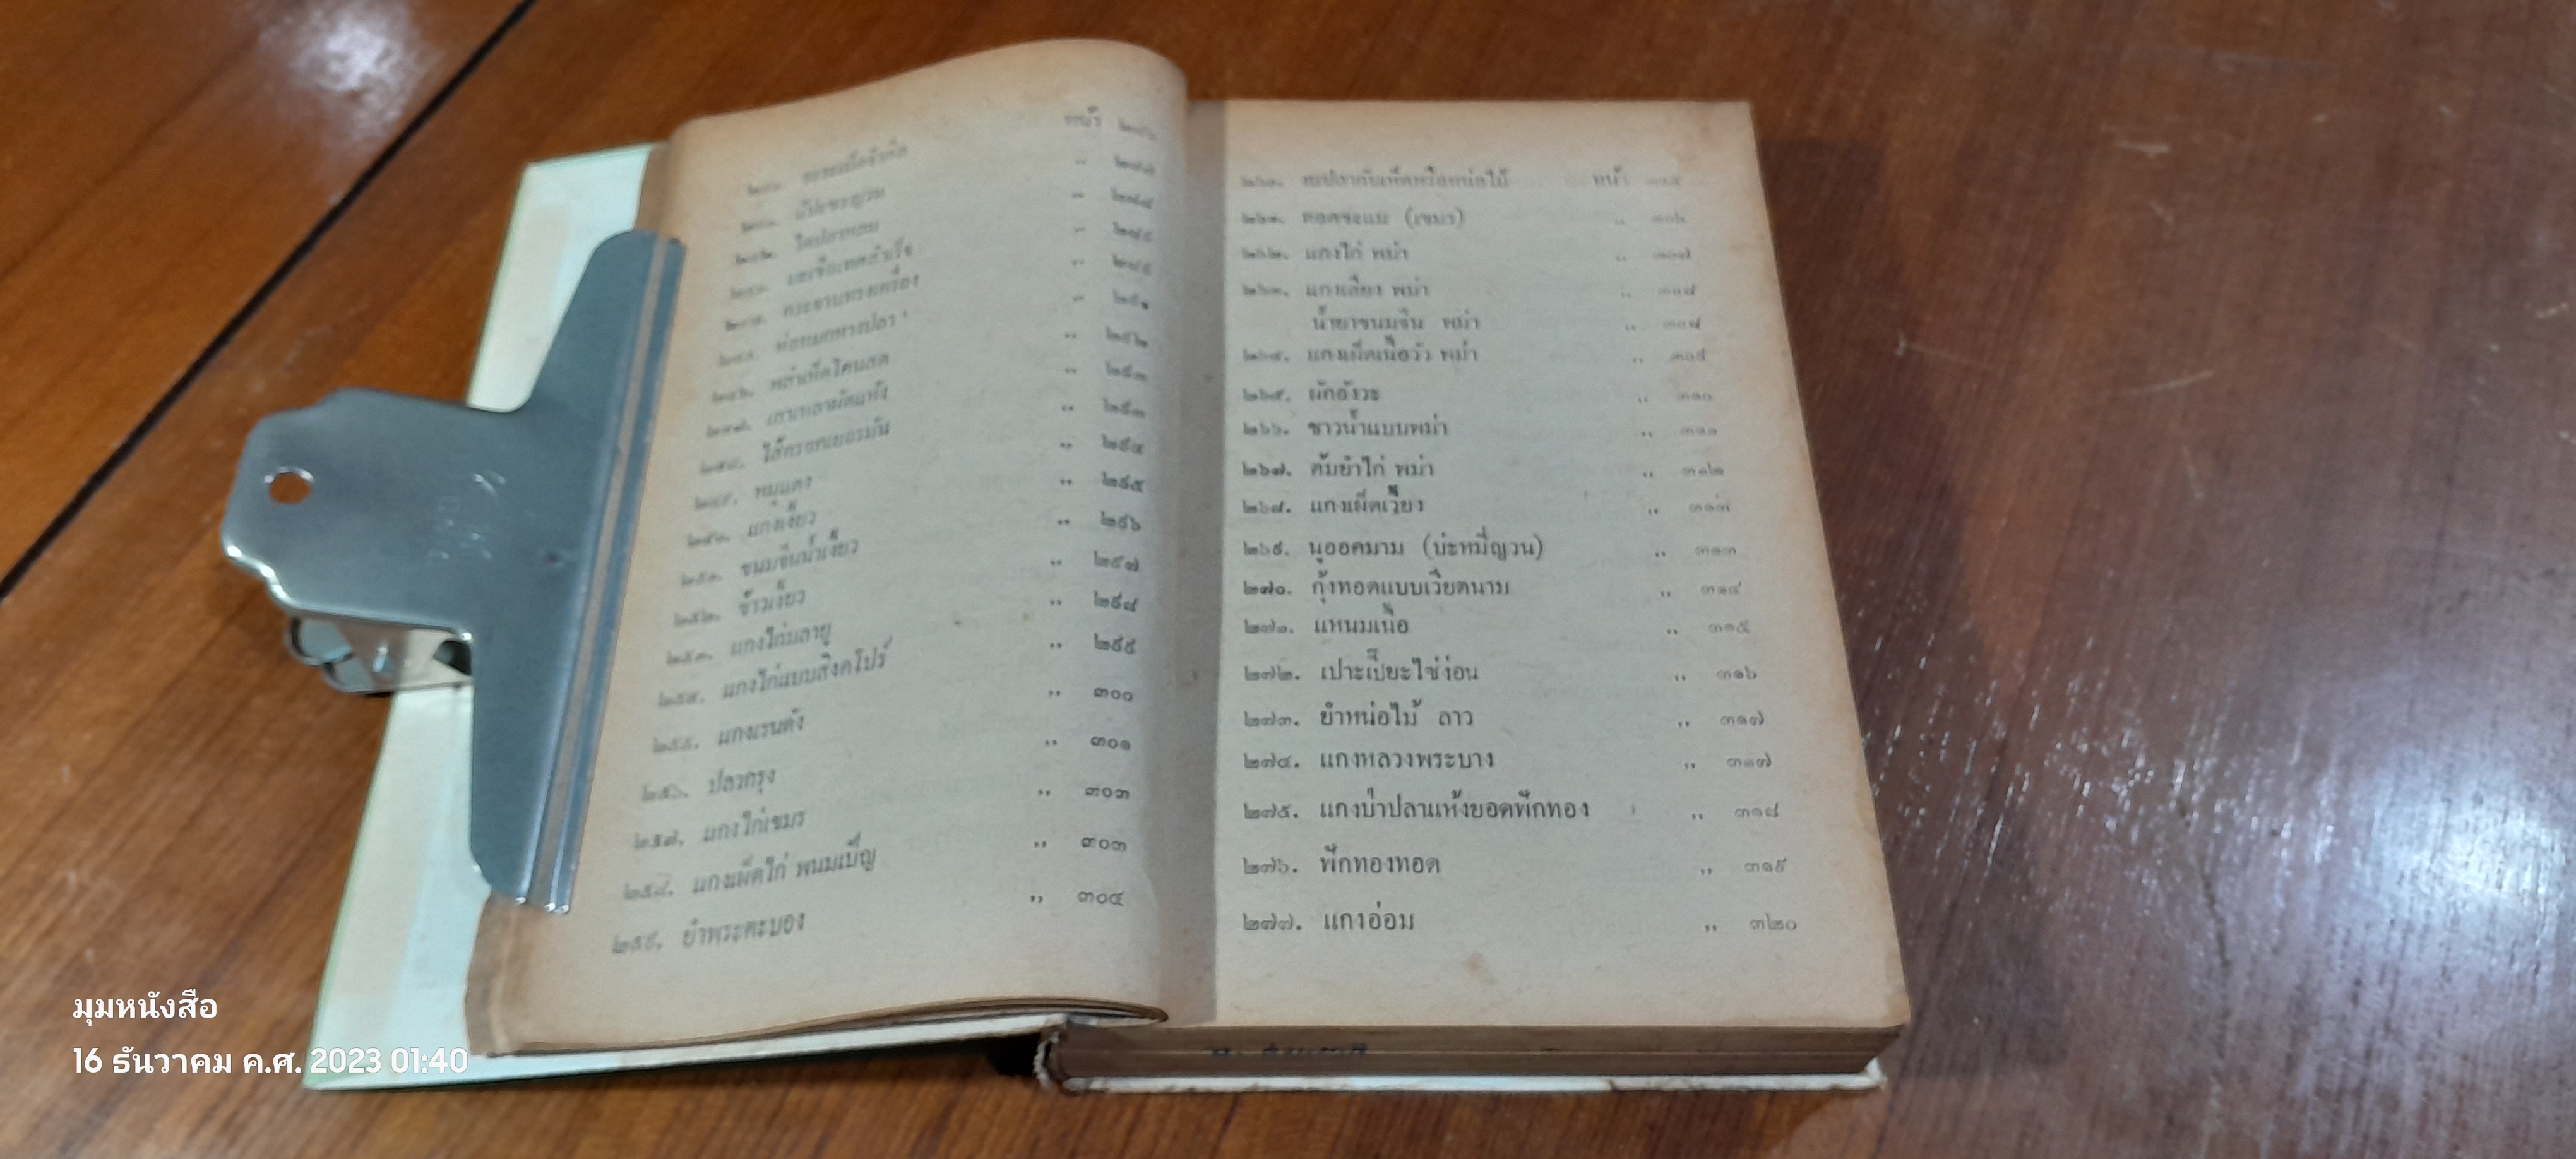 หน้า ๒๘๖
,, ๒๘๗
,, ๒๘๘
,, ๒๘๙
,, ๒๘๙
,, ๒๙๑
๒๔๖. พล่าเห็ดโคนสด ,, ๒๙๒
,, ๒๙๓
๒๔๘. ไส้กรอกเยอรมัน ,, ๒๙๓
๒๔๙. หมูแดง ,, ๒๙๔
๒๕๐. แกงเงี้ยว ,, ๒๙๕
๒๕๑. ขนมจีนน้ำเงี้ยว ,, ๒๙๖
๒๕๒. ข้าวเงี้ยว ,, ๒๙๗
๒๕๓. แกงไก่มลายู ,, ๒๙๘
๒๕๔. แกงไก่แบบสิงคโปร์ ,, ๒๙๙
๒๕๕. แกงเรนดัง ,, ๓๐๐
๒๕๖. ปลวกรุง ,, ๓๐๑
๒๕๗. แกงไก่เขมร ,, ๓๐๓
๒๕๘. แกงเผ็ดไก่ พนมเป็ญ ,, ๓๐๓
๒๕๙. ยำพระตะบอง ,, ๓๐๔
๒๖๐. หน้า ๓๐๕
๒๖๑. ทอดขะแม (เขมร) ,, ๓๐๖
๒๖๒. แกงไก่ พม่า ,, ๓๐๗
๒๖๓. แกงเลียง พม่า ,, ๓๐๘
น้ำยาขนมจีน พม่า ,, ๓๐๘
๒๖๔. แกงเผ็ดเนื้อวัว พม่า ,, ๓๐๙
๒๖๕. ผักลังวะ ,, ๓๑๐
๒๖๖. ซาวน้ำแบบพม่า ,, ๓๑๑
๒๖๗. ต้มยำไก่ พม่า ,, ๓๑๒
๒๖๘. แกงเผ็ดเวียง ,, ๓๑๓
๒๖๙. นูออคมาม (บะหมี่ญวน) ,, ๓๑๓
๒๗๐. กุ้งทอดแบบเวียดนาม ,, ๓๑๔
๒๗๑. แหนมเนื้อ ,, ๓๑๕
๒๗๒. เปาะเปี๊ยะไซ่ง่อน ,, ๓๑๖
๒๗๓. ยำหน่อไม้ ลาว ,, ๓๑๗
๒๗๔. แกงหลวงพระบาง ,, ๓๑๗
๒๗๕. แกงป่าปลาแห้งยอดฟักทอง ,, ๓๑๘
๒๗๖. ฟักทองทอด ,, ๓๑๙
๒๗๗. แกงอ่อม ,, ๓๒๐
มุมหนังสือ
16 ธันวาคม ค.ศ. 2023 01:40